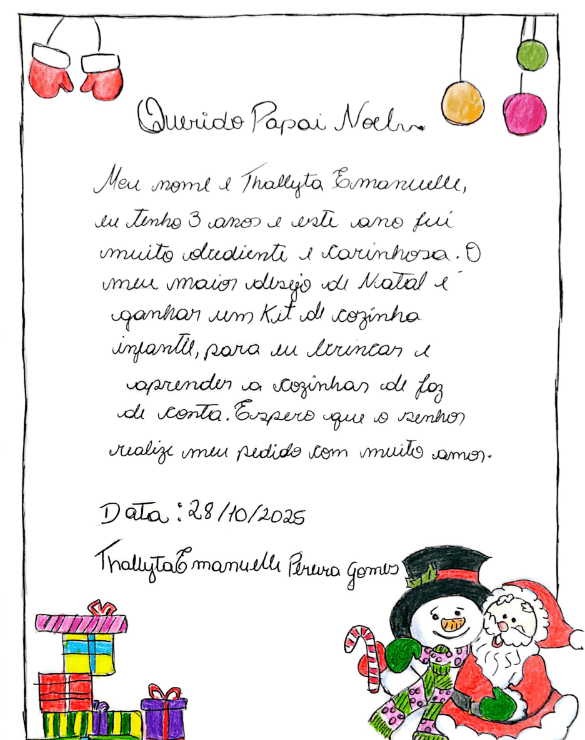 Querido Papai Noel.
Meu nome é Thallyta Emanuelle,
eu tenho 3 anos e este ano fui
muito obediente e carinhosa. O
meu maior desejo de Natal é
ganhar um Kit de cozinha
infantil, para eu brincar e
aprender a cozinhar de faz
de conta. Espero que o senhor
realize meu pedido com muito amor.
Data: 28/10/2025
Thallyta Emanuelle Pereira Gomes